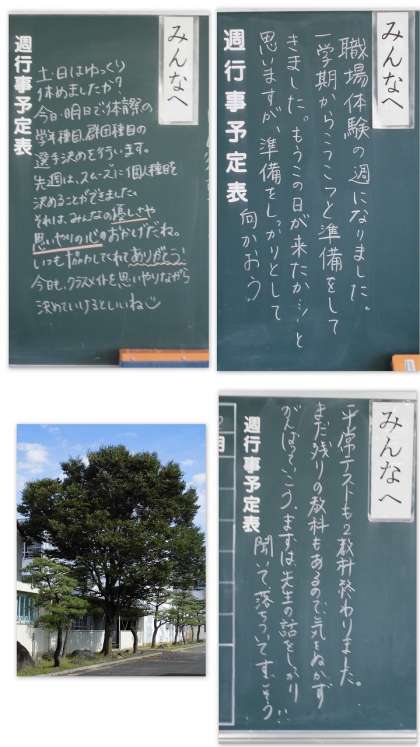 みんなへ
週行事予定表
土・日はゆっくり
休めましたか?
今日・明日で体育祭の
学年種目、群団種目の
選手決めを行います。
先週は、スムーズに個人種目を
決めることができました。
それは、みんなの優しさや
思いやりの心のおかげだね。
いつも協力してくれてありがとう。
今日も、クラスメイトを思いやりながら
決めていけるといいね
みんなへ
週行事予定表
職場体験の週になりました。
一学期からこつこつと準備をして
きました。もうこの日が来たか…!と
思いますが、準備をしっかりとして
向かおう。
みんなへ
週行事予定表
平常テストも2教科終わりました。
まだ残りの教科もあるので気をぬかず
がんばろう。まずは先生の話をしっかり
聞いて落ちついてすごそう!!